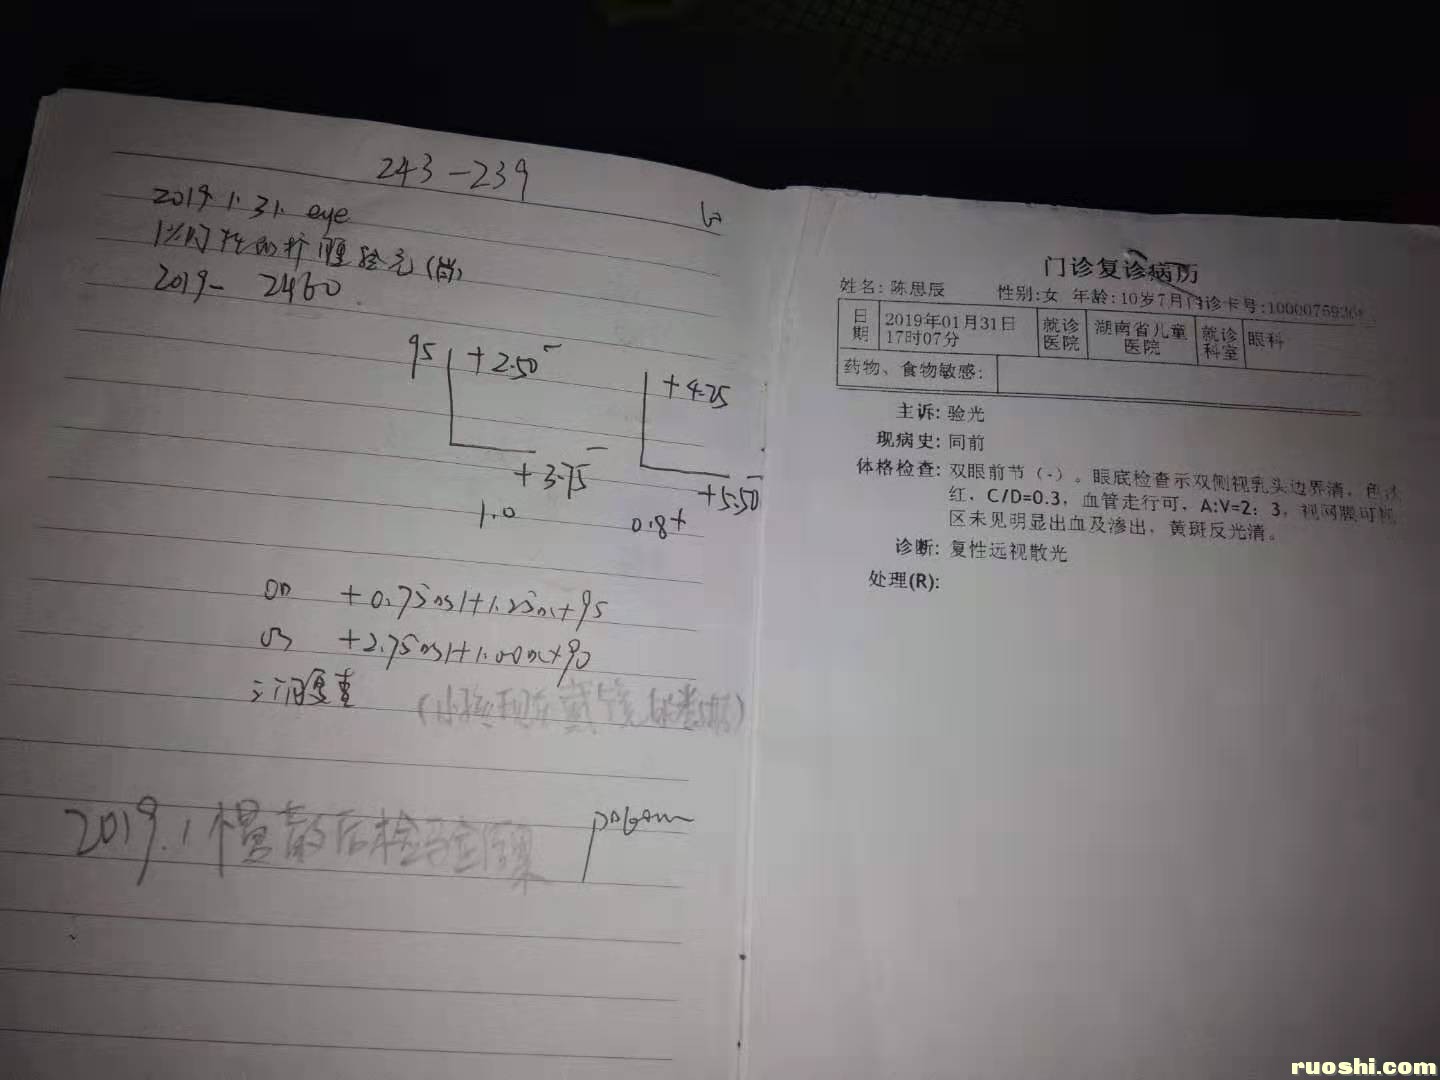 243-239
2019.1.31. eye
1%阿托品扩瞳验光
2019- 2460
95 +2.50
+3.75
1.0
+4.25
+5.50
0.8+
+0.75DS/+1.25DC×95
+2.75DS/+1.00DC×90
复查
(小孩现在戴镜的数据)
2019.1慢散后检验结果
门诊复诊病历
姓名: 陈思辰 性别:女 年龄:10岁7月门诊卡号:
日期 2019年01月31日 17时07分 就诊医院 湖南省儿童医院 就诊科室 眼科
药物、食物敏感:
主诉: 验光
现病史: 同前
体格检查: 双眼前节（-）。眼底检查示双侧视乳头边界清，色淡
红，C/D=0.3，血管走行可，A:V=2：3，视网膜可视
区未见明显出血及渗出，黄斑反光清。
诊断: 复性远视散光
处理(R):
ruoshi.com